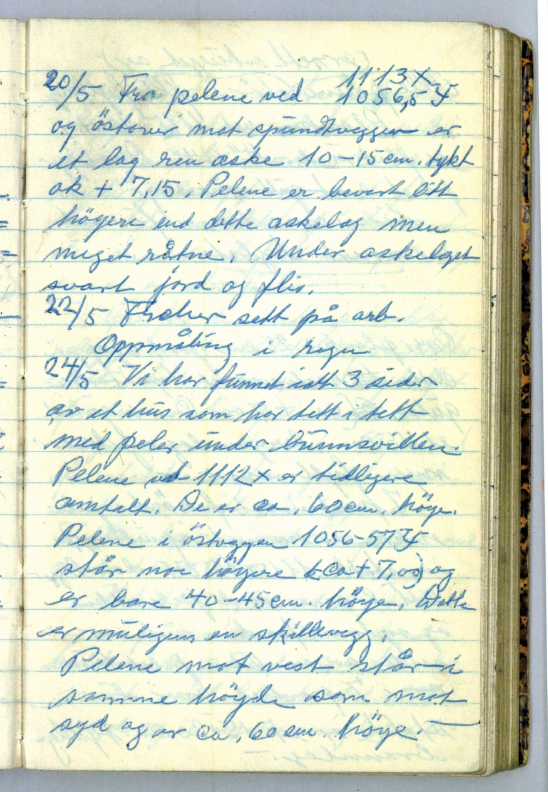 20/5 Fra pelene ved 1113X
1056,5Y
og östover mot spundtveggen er
et lag ren aske 10-15cm. tykt
ok + 7,15. Pelene er bevart litt
höyere end dette askelag men
meget råtne. Under askelaget
svart jord og flis.
22/5 Fischer sett på arb.
Oppmåling i regn
24/5 Vi har funnet 3 sider
av et hus som har tett i tett
med peler under bunnsvillen.
Pelene ved 1112X er tidligere
omtalt. De er ca. 60cm. höye.
Pelene i östveggen 1056-57Y
står noe höyere (ca + 7,00) og
er bare 40-45cm. höye. Dette
er muligens en skillevegg.
Pelene mot vest står i
samme höyde som mot
syd og er ca. 60cm höye.